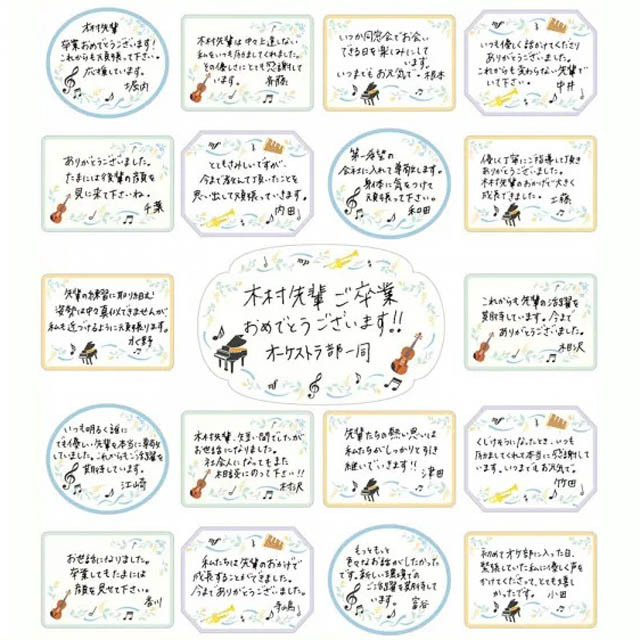 木村先輩
卒業おめでとうございます!
これからも頑張って下さい。
応援しています。
堀内
木村先輩は中々上達しない
私をいつも励ましてくれました。
その優しさにとても感謝して
います。
斉藤
いつか同窓会でお会い
できる日を楽しみにして
います。
いつまでもお元気で。根本
いつも優しく話かけてくださり
ありがとうございました。
これからも変わらない先輩で
いて下さい。
中井
ありがとうございました。
たまには後輩の顔を
見に来て下さいね。
千葉
とてもさみしいですが、
今まで教えて頂いたことを
思い出して頑張っていきます。
内田
第一希望の
会社に入れて尊敬します。
身体に気をつけて
頑張って下さい。
和田
優しく丁寧にご指導して頂き
ありがとうございました。
木村先輩のおかげで大きく
成長できました。
工藤
先輩の練習に取り組む
姿勢は中々真似できませんが
私も近づけるように頑張ります。
水野
木村先輩 ご卒業
おめでとうございます!!
オーケストラ部一同
これからも先輩の活躍を
期待しています。今まで
ありがとうございました。
相沢
いつも明るく誰に
でも優しい先輩を本当に尊敬
していました。これからもご活躍を
期待しています。
江崎
木村先輩、短い間でしたが
お世話になりました。
社会人になってもまた
相談にのって下さい!!
村沢
先輩たちの熱い思いは
私たちがしっかりと引き
継いでいきます!!
津田
くじけそうになったとき、いつも
励ましてくれて本当に感謝して
います。いつまでもお元気で。
竹田
お世話になりました。
卒業してもたまには
顔を見せて下さい。
香川
私たちは先輩のおかげで
成長することができました。
今までありがとうございました。
もっともっと
色々なお話がしたかった
です。新しい環境での
ご活躍を期待して
います。
富谷
初めてオケ部に入った日、
緊張していた私に優しく声を
かけてくださって、とても嬉し
かったです。
小田